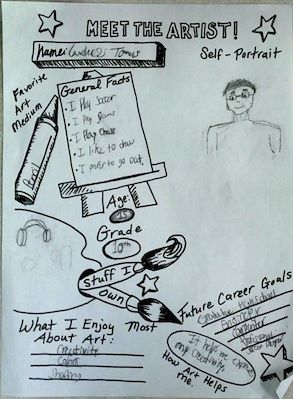 MEET THE ARTIST!
Name:
Self-Portrait
Favorite
Art
Medium
Pencil
General Facts
• I Play Soccer
• I Play
• I Play Chess
• I like to draw
• I prefer to go out
Age:
Grade
10th
Stuff I
Own
Future Career Goals
Engineer
It help me express
my creativity
How Art Helps
me.
What I Enjoy Most
About Art:
Creativity
Colors
Shading